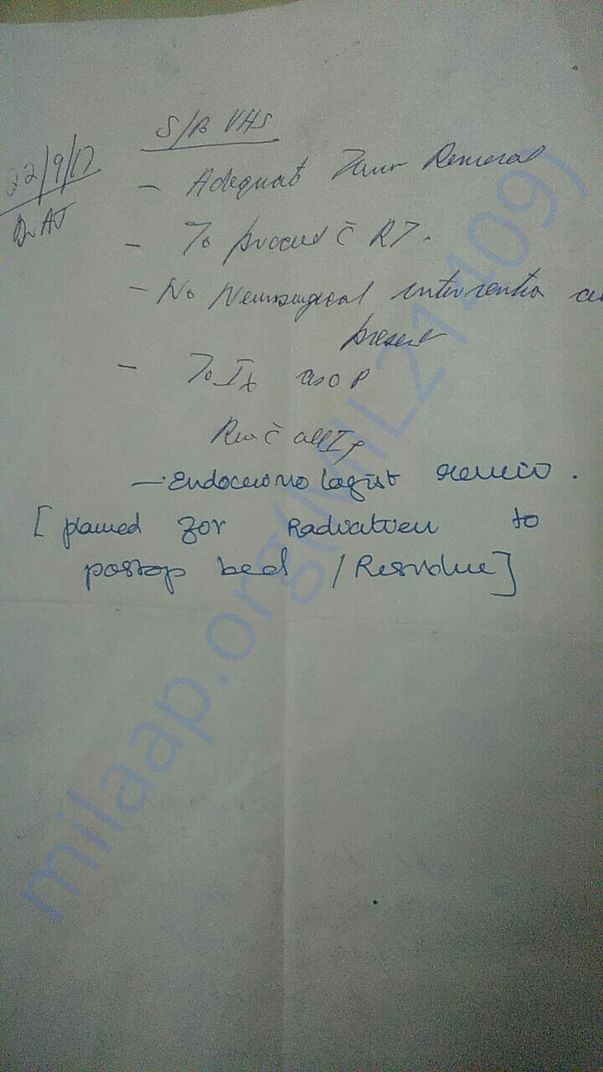 S/B VHS
22/9/17
Dr AJ
- Adequat Tumr Removal
- To proceed c̄ RT.
- No Neurosurgical intervention at
present
- To Ix as OP
Rev c̄ all Ix
- Endocrinologist review.
[planned for Radiation to
postop bed / Residue]
milaap.org(MIL214109)